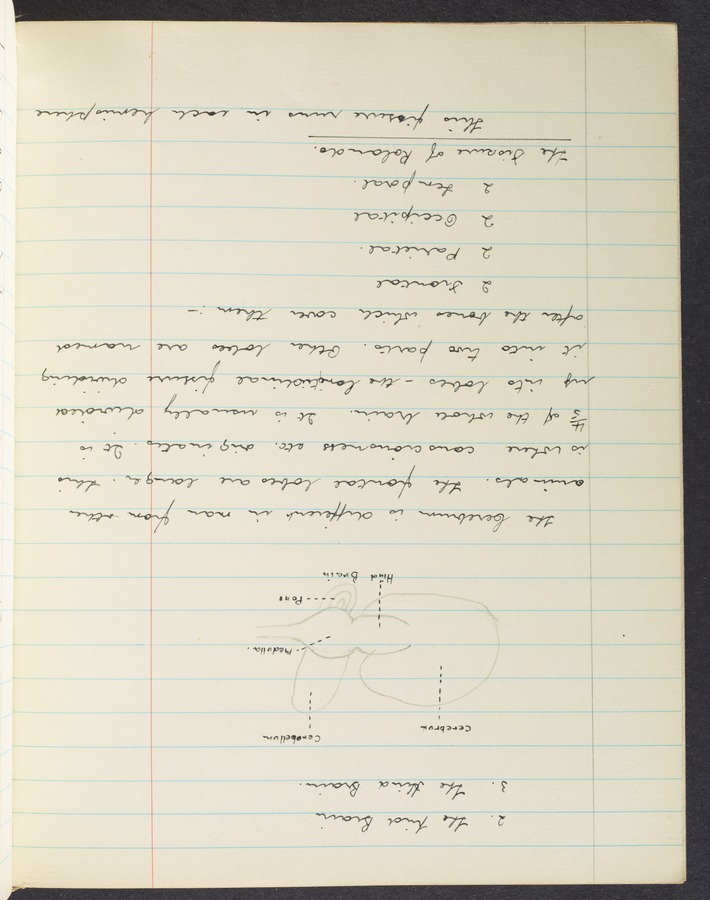 2. The Mid Brain
3. The Hind Brain.
Cerebrum
Cerebellum
Medulla.
Pons
Hind Brain
The Cerebrum is different in man from other
animals. The frontal lobes are larger. This
is where consciousness etc. originates. It is
4/5 of the whole brain. It is usually divided
up into lobes – the longitudinal fissure dividing
it into two parts. Other lobes are named
after the bones which cover them :-
2 Frontal
2 Parietal.
2 Occipital
2 Temporal.
The Fissure of Rolando.
This fissure runs in each hemisphere